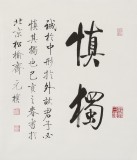 慎獨
誠於中形於外故君子必
慎其獨也己亥之春書於
北京松榆齋元